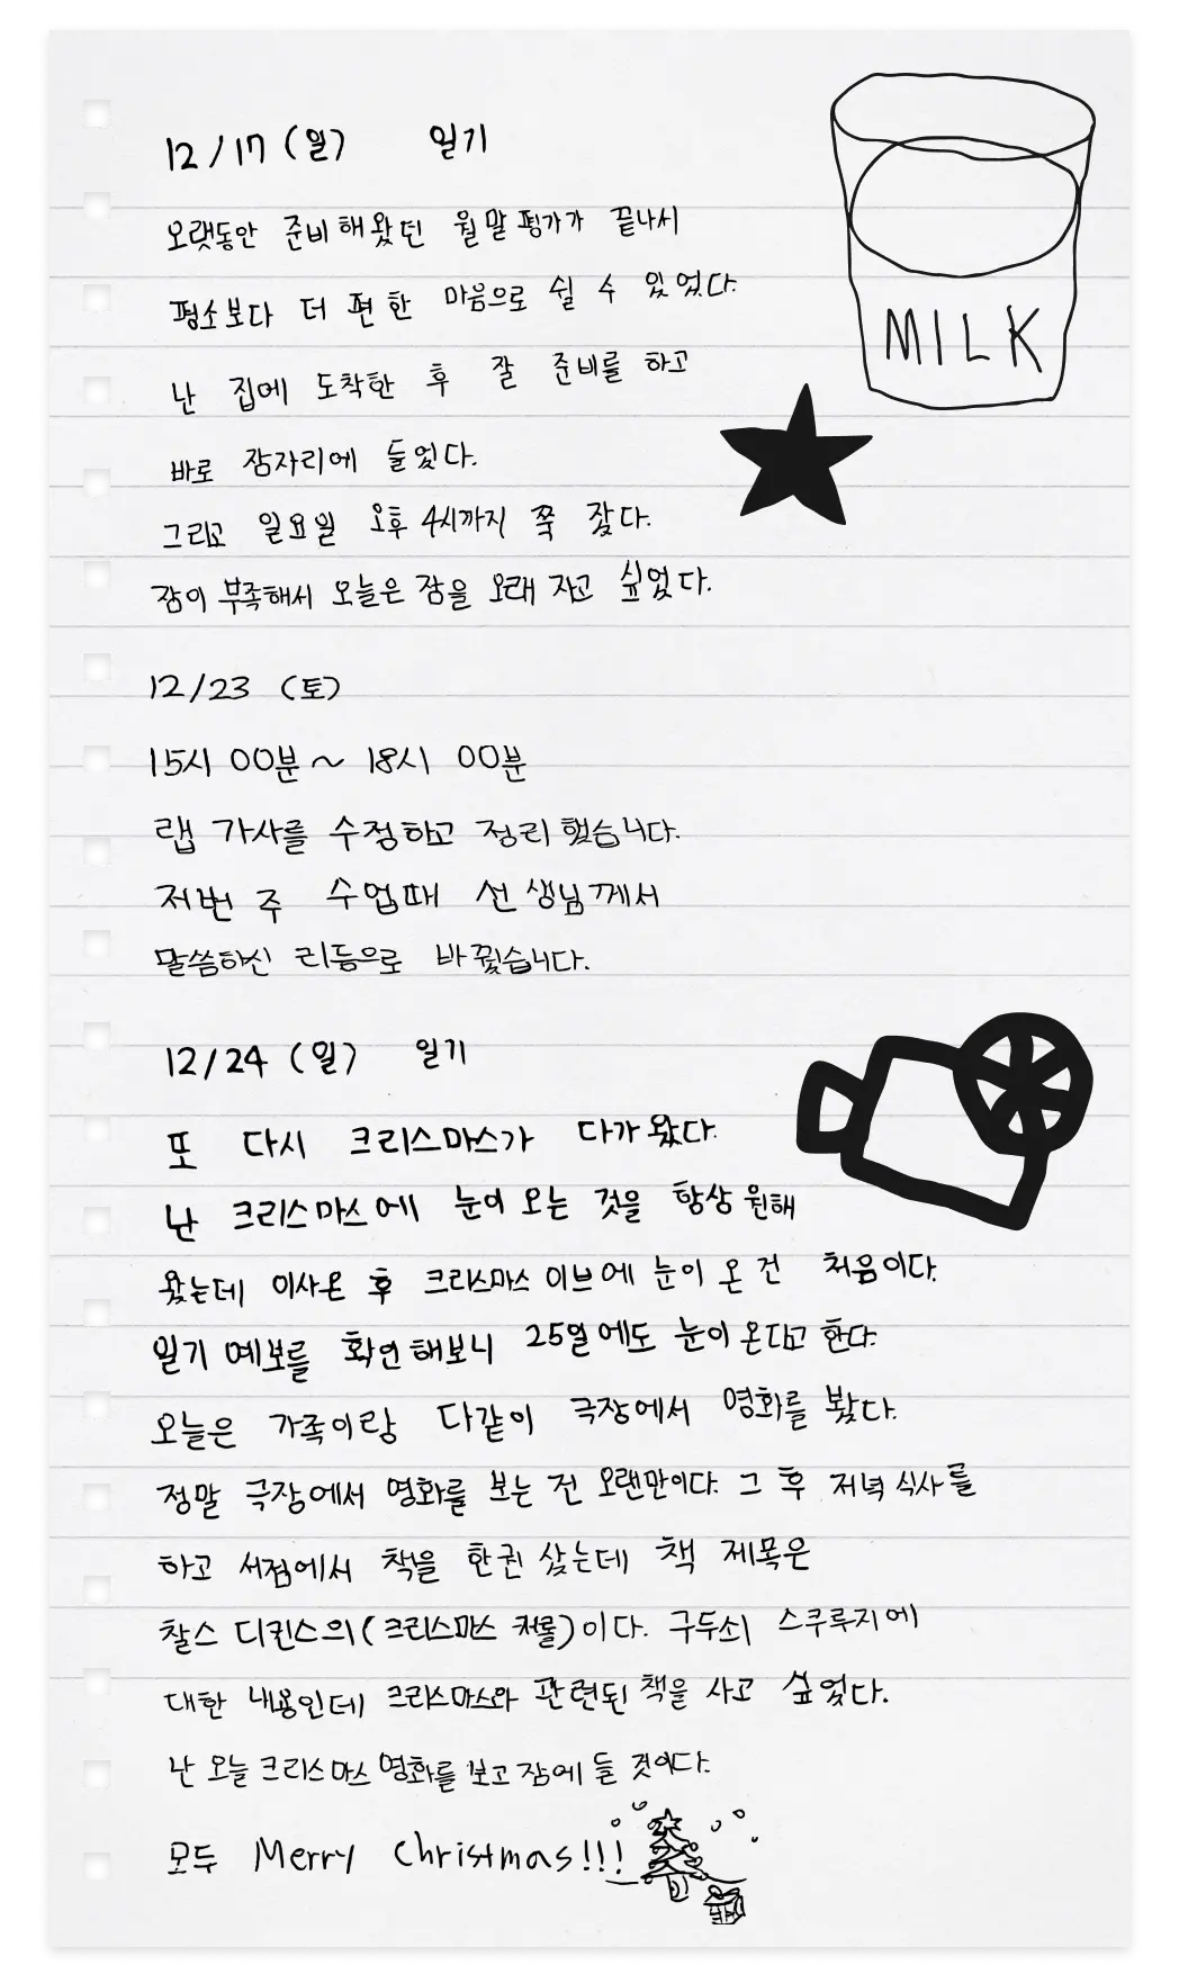 12/17 (일) 일기
MILK
오랫동안 준비해왔던 월말평가가 끝나서
평소보다 더 편한 마음으로 쉴 수 있었다.
난 집에 도착한 후 잘 준비를 하고
바로 잠자리에 들었다.
그리고 일요일 오후 4시까지 쭉 잤다.
잠이 부족해서 오늘은 잠을 오래 자고 싶었다.
12/23 (토)
15시 00분 ~ 18시 00분
랩 가사를 수정하고 정리했습니다.
저번 주 수업때 선생님께서
말씀하신 리듬으로 바꿨습니다.
12/24 (일) 일기
또 다시 크리스마스가 다가왔다.
난 크리스마스에 눈이 오는 것을 항상 원해
왔는데 이사온 후 크리스마스 이브에 눈이 온 건 처음이다.
일기 예보를 확인해보니 25일에도 눈이 온다고 한다.
오늘은 가족이랑 다같이 극장에서 영화를 봤다.
정말 극장에서 영화를 보는 건 오랜만이다. 그 후 저녁 식사를
하고 서점에서 책을 한권 샀는데 책 제목은
찰스 디킨스의 (크리스마스 캐롤)이다. 구두쇠 스쿠루지에
대한 내용인데 크리스마스와 관련된 책을 사고 싶었다.
난 오늘 크리스마스 영화를 보고 잠에 들 것이다.
모두 Merry Christmas!!!